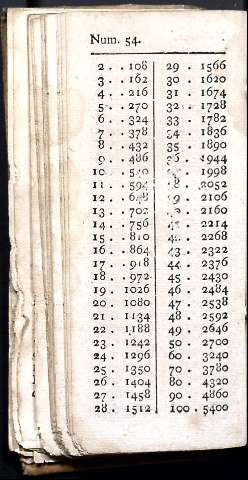 Num. 54.
2 . . 108
3 . . 162
4 . . 216
5 . . 270
6 . . 324
7 . . 378
8 . . 432
9 . . 486
10 . . 540
11 . . 594
12 . . 648
13 . . 702
14 . . 756
15 . . 810
16 . . 864
17 . . 918
18 . . 972
19 . 1026
20 . 1080
21 . 1134
22 . 1188
23 . 1242
24 . 1296
25 . 1350
26 . 1404
27 . 1458
28 . 1512
29 . 1566
30 . 1620
31 . 1674
32 . 1728
33 . 1782
34 . 1836
35 . 1890
36 . 1944
1998
2052
2106
2160
2214
2268
43 . 2322
44 . 2376
45 . 2430
46 . 2484
47 . 2538
48 . 2592
49 . 2646
50 . 2700
60 . 3240
70 . 3780
80 . 4320
90 . 4860
100 . 5400